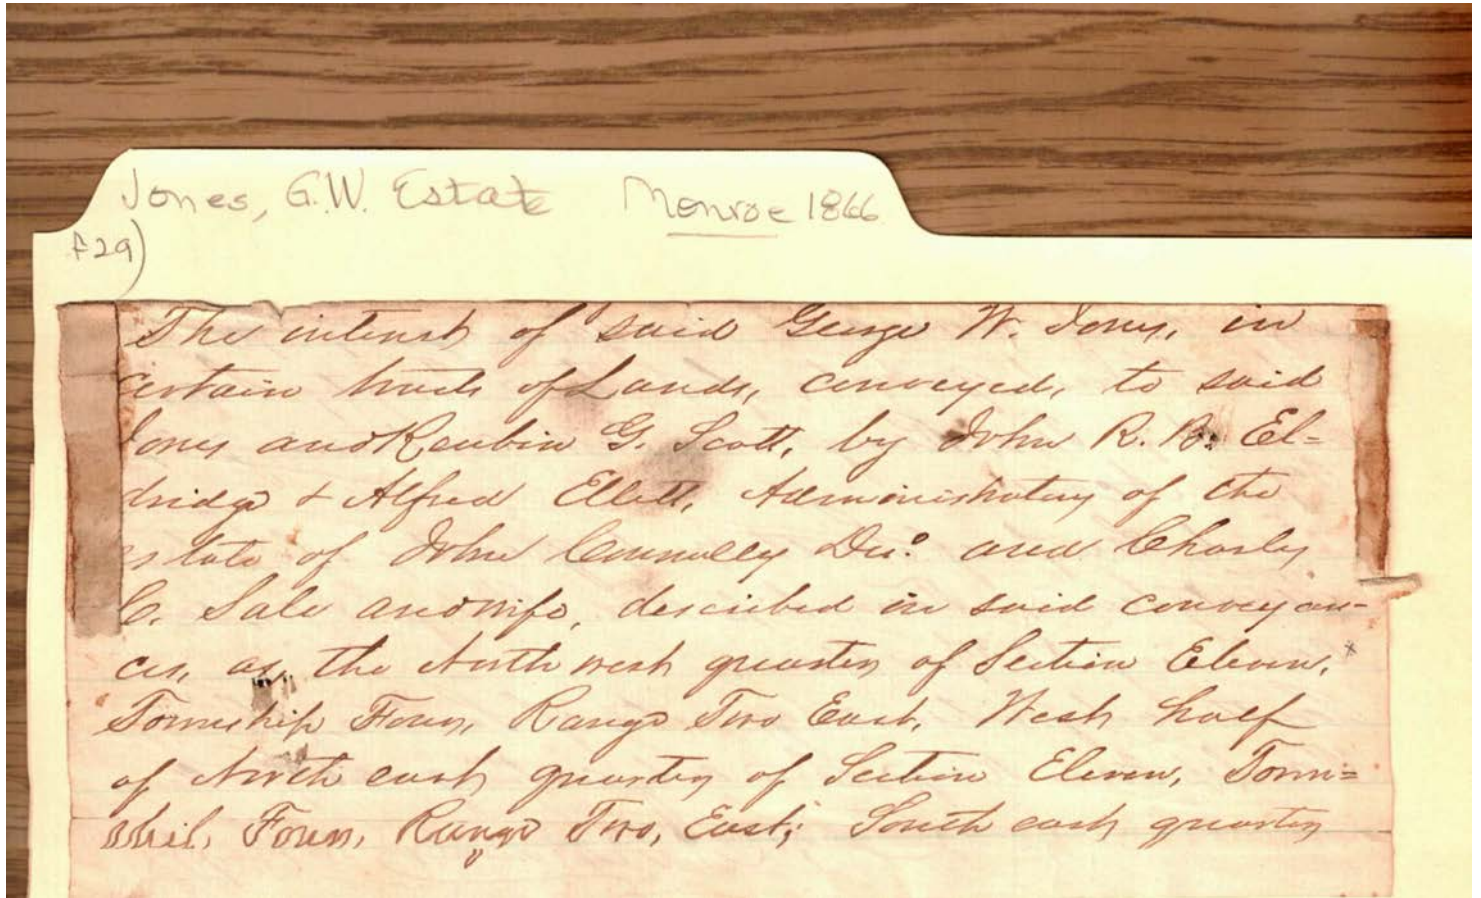 Jones, G.W. Estate Monroe 1866
f29)
The interest of said George W. Jones, in
certain tracts of Lands, conveyed, to said
Jones and Reubin G. Scott, by John R. B. El=
dridge & Alfred Ellett, Administrators of the
estate of John Connolly Decd. and Charles
C. Sale and wife, described in said conveyan-
ces, as, the North west quarter of Section Eleven,
Township Four, Range Two East, West half
of North east quarter of Section Eleven, Town=
ship, Four, Range Two, East; South east quarter